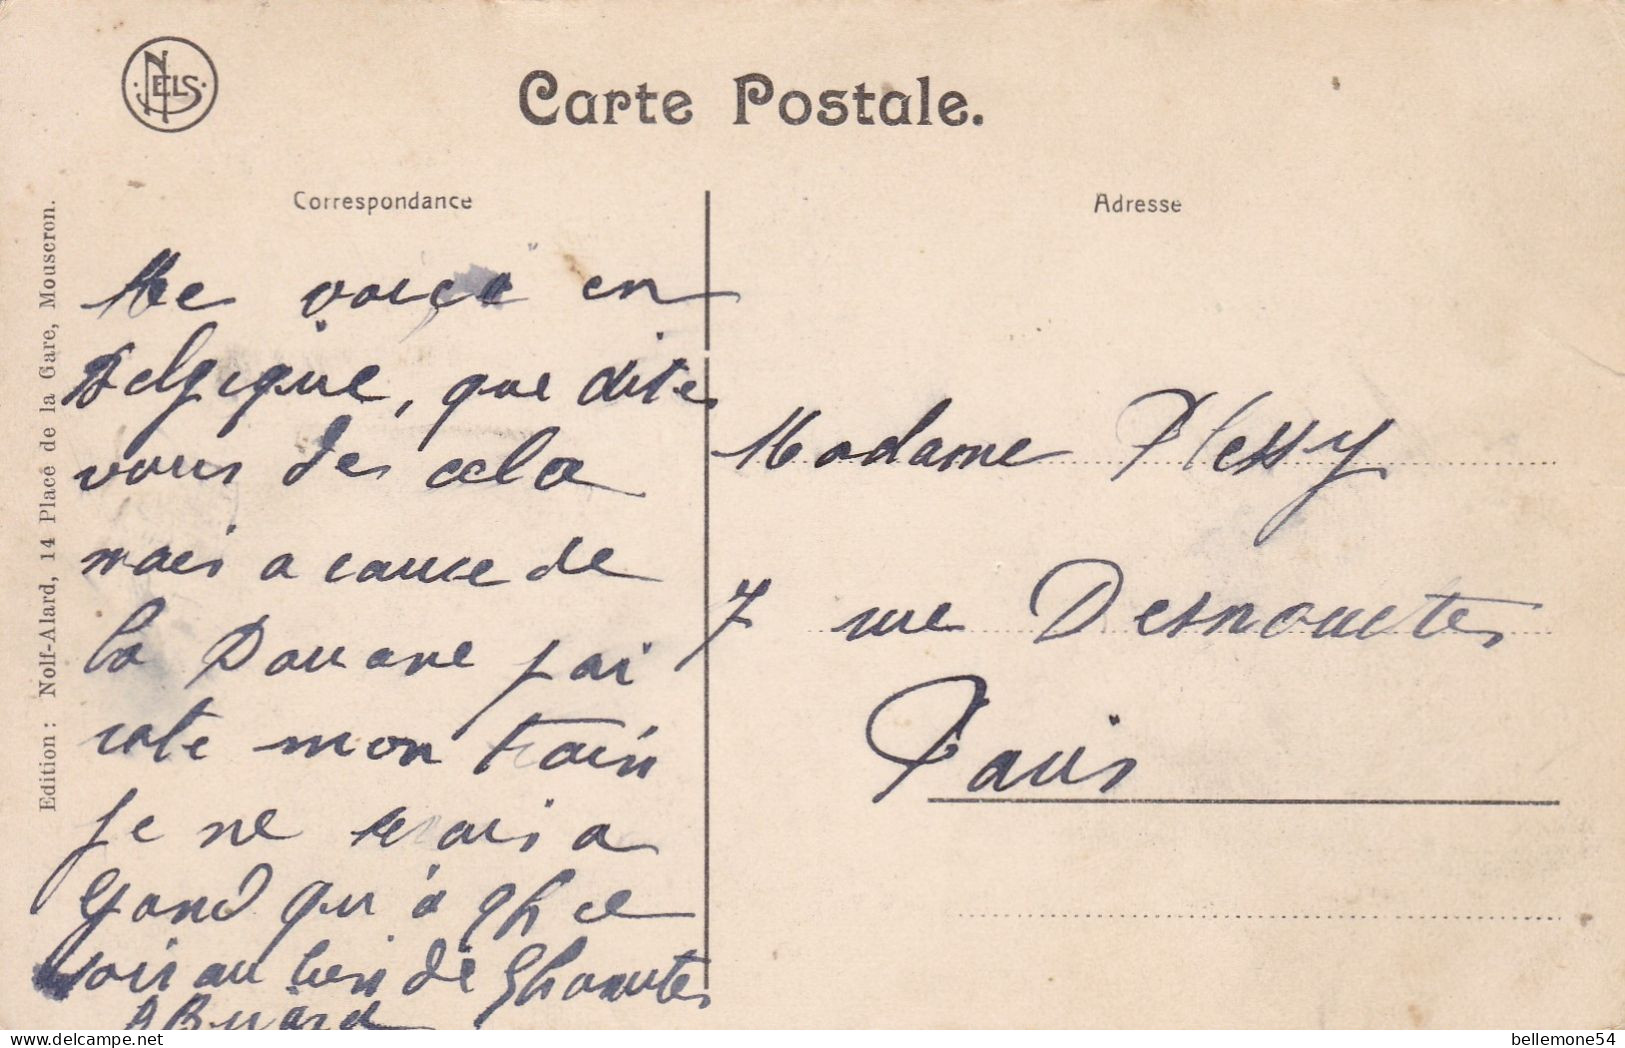 NELS
Carte Postale.
Correspondance
Adresse
Edition : Nolf-Alard, 14 Place de la Gare, Mouscron.
Me voici en
Belgique, que dites
vous de cela
mais a cause de
la Douane j'ai
raté mon train
je ne serais a
Gand qu'à 9h ce
soir au lieu de 5h
A Buard
Madame Plessy
7 rue Desnouettes
Paris
delcampe.net
bellemone54